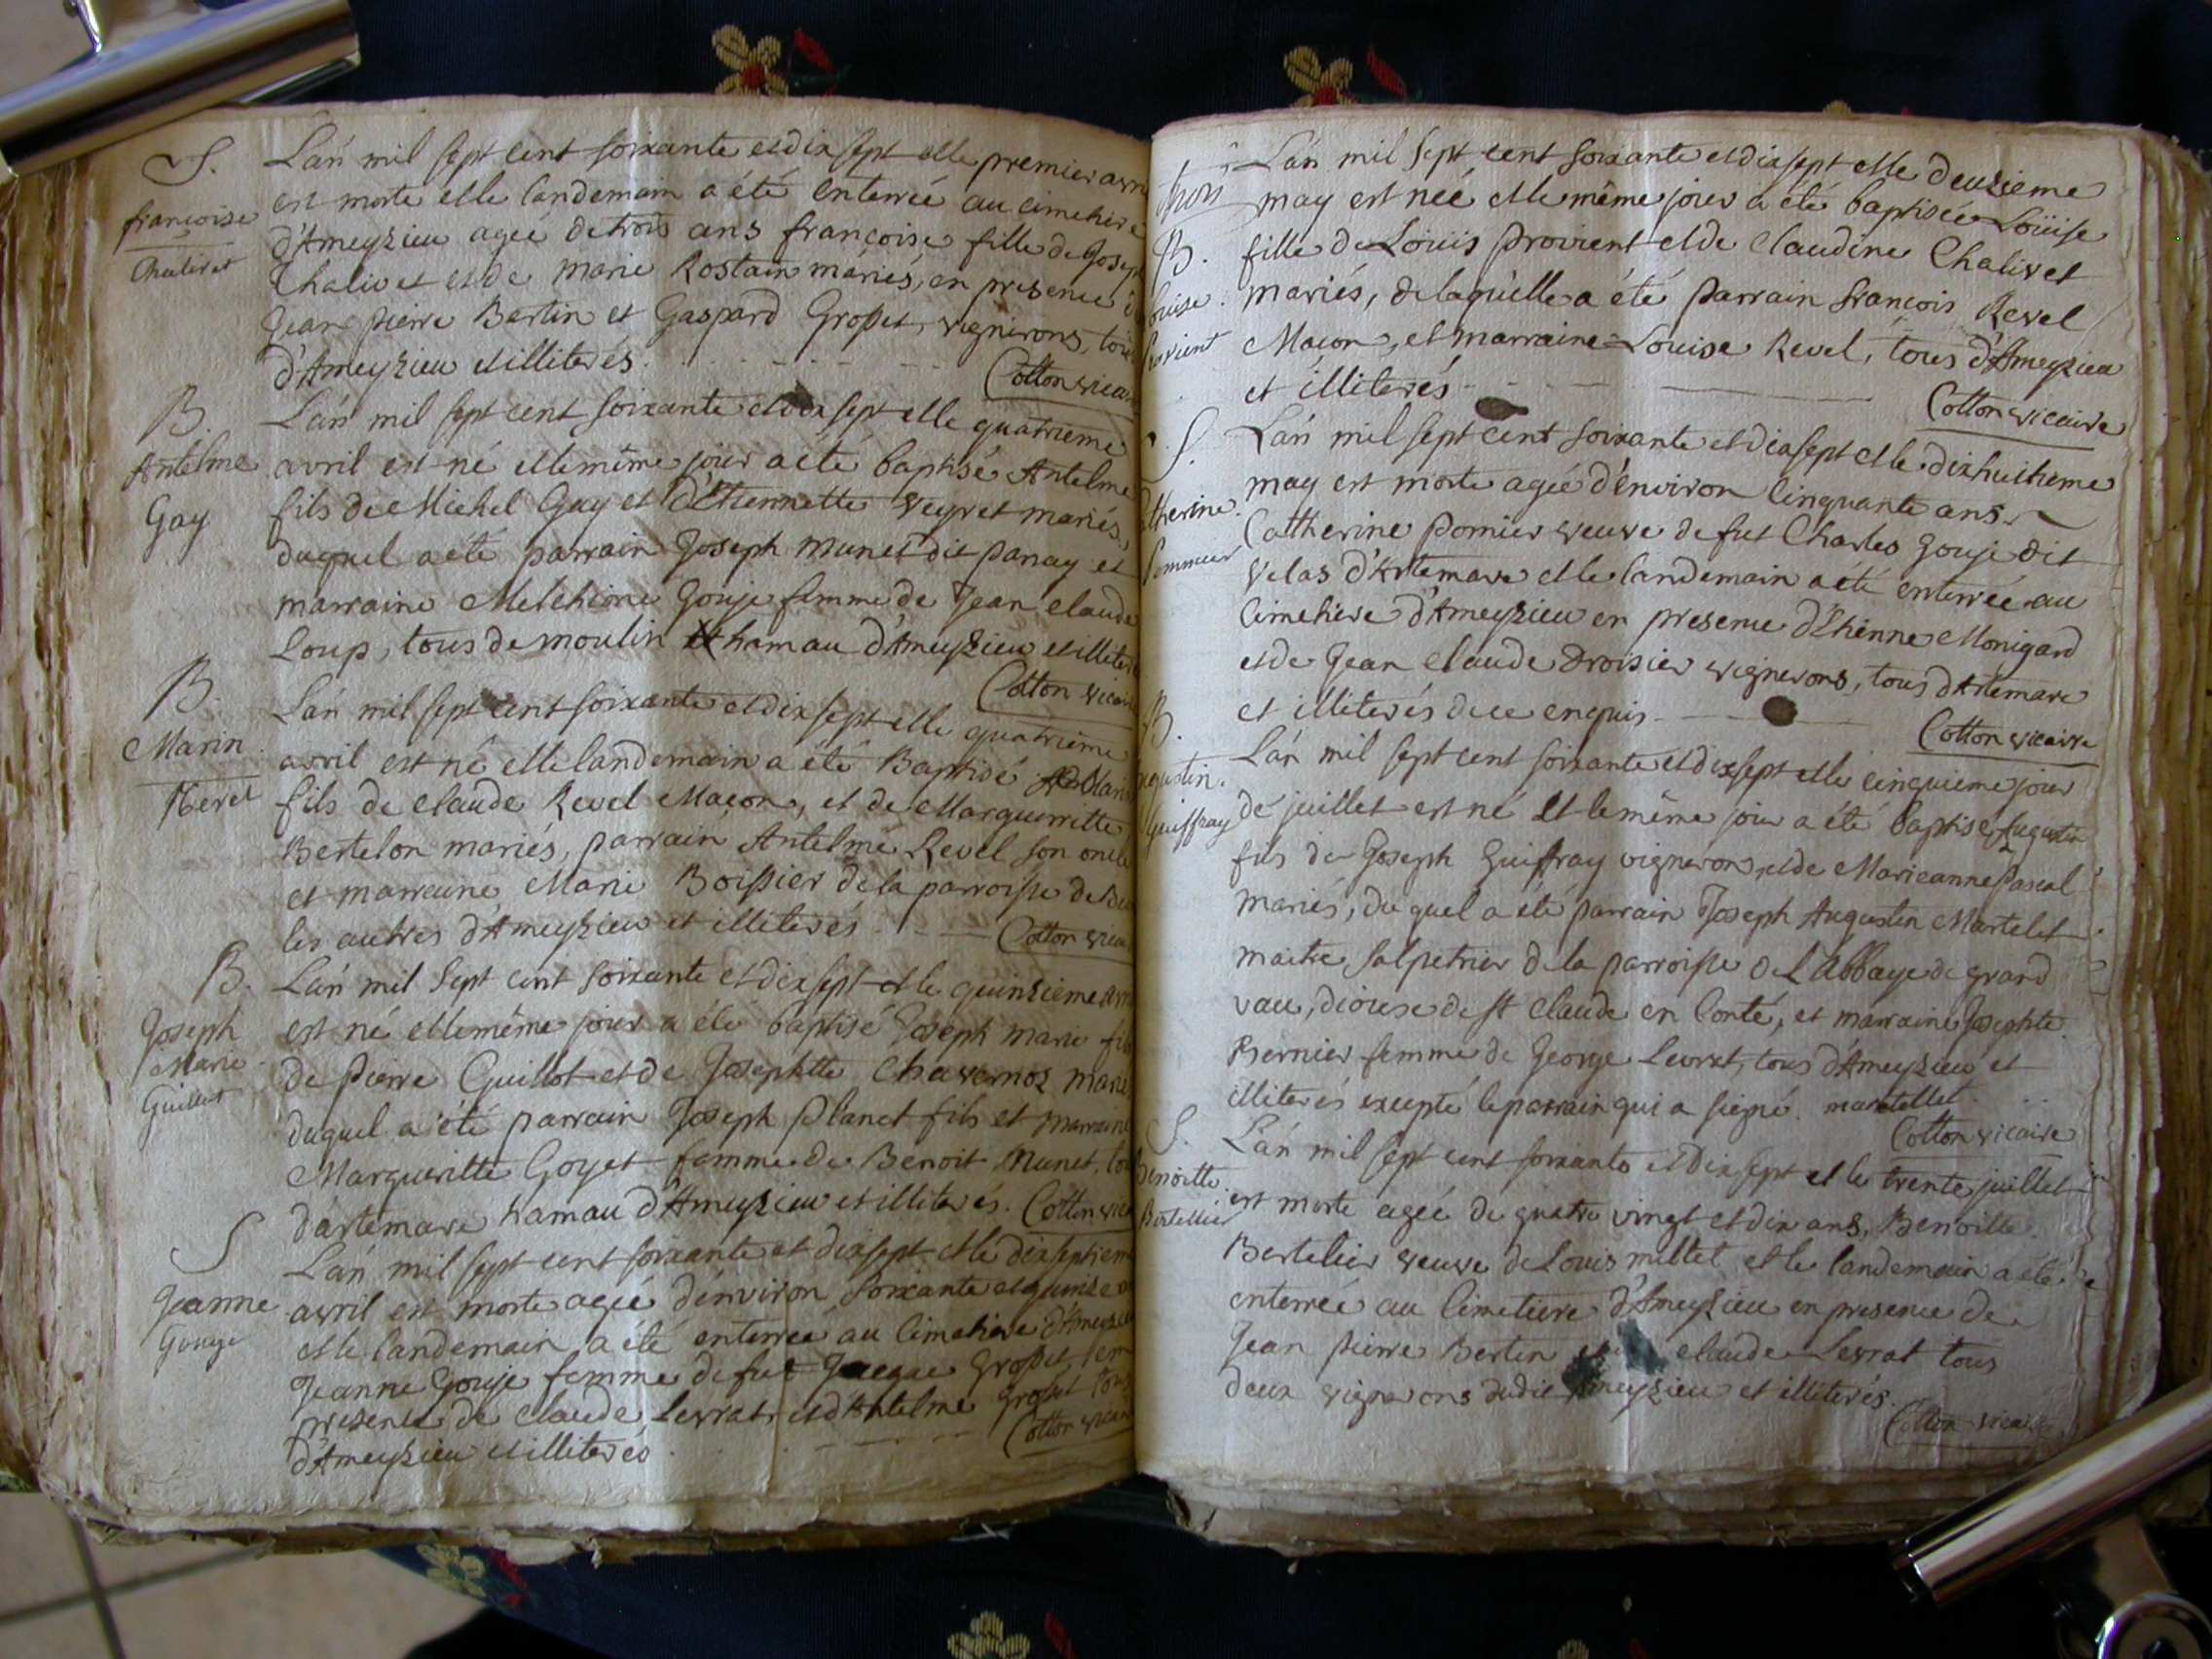 S.
françoise
Chalivet
L'an mil sept cent soixante et dix sept et le premier avri
est morte et le landemain a été enterrée au cimetiere
d'Ameyzieu agée de trois ans françoise fille de Josep
Chalivet et de marie Rostain mariés, en presence
Jean pierre Bertin et Gaspard Grosset, vignerons, tou
d'Ameyzieu et illiterés.
Cotton vicai
B.
Antelme
Gay
L'an mil sept cent soixante et dix sept et le quatrieme
avril est né et le même jour a été baptisé Antelme
fils de Michel Gay et d'Etiennette Veyret mariés,
duquel a été parrain Joseph munet dit panay et
marraine Melchione Gouje femme de Jean claude
Loup, tous de moulin hamau d'Ameyzieu et illiter
Cotton vicai
B.
Marin
Revel
L'an mil sept cent soixante et dix sept et le quatrieme
avril est né et le landemain a été Baptisé
fils de claude Revel Maçon, et de Marguerritte
Bertelon mariés, parrain Antelme Revel son oncle
et marraine Marie Boissier de la parroisse de
les autres d'Ameyzieu et illiterés
Cotton vicai
B.
Joseph
Marie
Guillot
L'an mil sept cent soixante et dix sept et le quinzieme avri
est né et le même jour a été baptisé Joseph marie fils
de pierre Guillot et de Josephtte Chavernoz marié
duquel a été parrain Joseph planet fils et marraine
Margueritte Goyet femme de Benoit Munet, tou
d'artemare hamau d'Ameyzieu et illiterés.
Cotton vica
S
Jeanne
Gouye
L'an mil sept cent soixante et dix sept et le dixseptieme
avril est morte agée d'environ soixante et quinze
et le landemain a été enterrée au cimetiere d'Ameyzieu
Jeanne Gouje femme de fut Grosset, en
presence de claude Levrat et d'Antelme Grosset tous
d'Ameyzieu et illiterés
Cotton vicai
B.
ouise
rovient
L'an mil sept cent soixante et dix sept et le deuzieme
may est neé et le même jour a été baptisée Loüise
fille de Loüis provient et de Claudine Chalivet
mariés, de laquelle a été parrain francois Revel
Macon, et marraine Louise Revel, tous d'Ameyzieu
et illiterés
Cotton vicaire
S.
therine.
Pommier
L'an mil sept cent soixante et dix sept et le dixhuitieme
may est morte agée d'environ cinquante ans
Catherine pomier veuve de fut Charles Gouje dit
velas d'Artemare et le landemain a été enterrée au
cimetiere d'Ameyzieu en presence d'Etienne Monigard
et de Jean claude Droisier vignerons, tous d'Artemare
et illiterés de ce enquis
Cotton vicaire
B.
gustin.
Guiffray
L'an mil sept cent soixante et dix sept et le cinquieme jour
de juillet est né et le même jour a été baptisé Augustin
fils de Joseph Guiffray vigneron, et de Marieanne Pascal
mariés, du quel a été parrain Joseph Augustin Martelet
maitre salpetrier de la parroisse de L'abbaye de grand
vau, diocese de st claude en Conté, et marraine Josephte
Bernier femme de George Levrat, tous d'Ameyzieu et
illiterés excepté le parrain qui a signé. martellet
Cotton vicaire
S.
Benoitte
Bertellier
L'an mil sept cent soixante et dix sept et le trente juillet
est morte agée de quatre vingt et dix ans, Benoitte
Bertelier veuve de Louis millet et le landemain a été
enterrée au Cimetiere d'Ameyzieu en presence de
Jean pierre Bertin claude Levrat tous
deux vignerons dudit Ameyzieu et illiterés.
Cotton vicaire